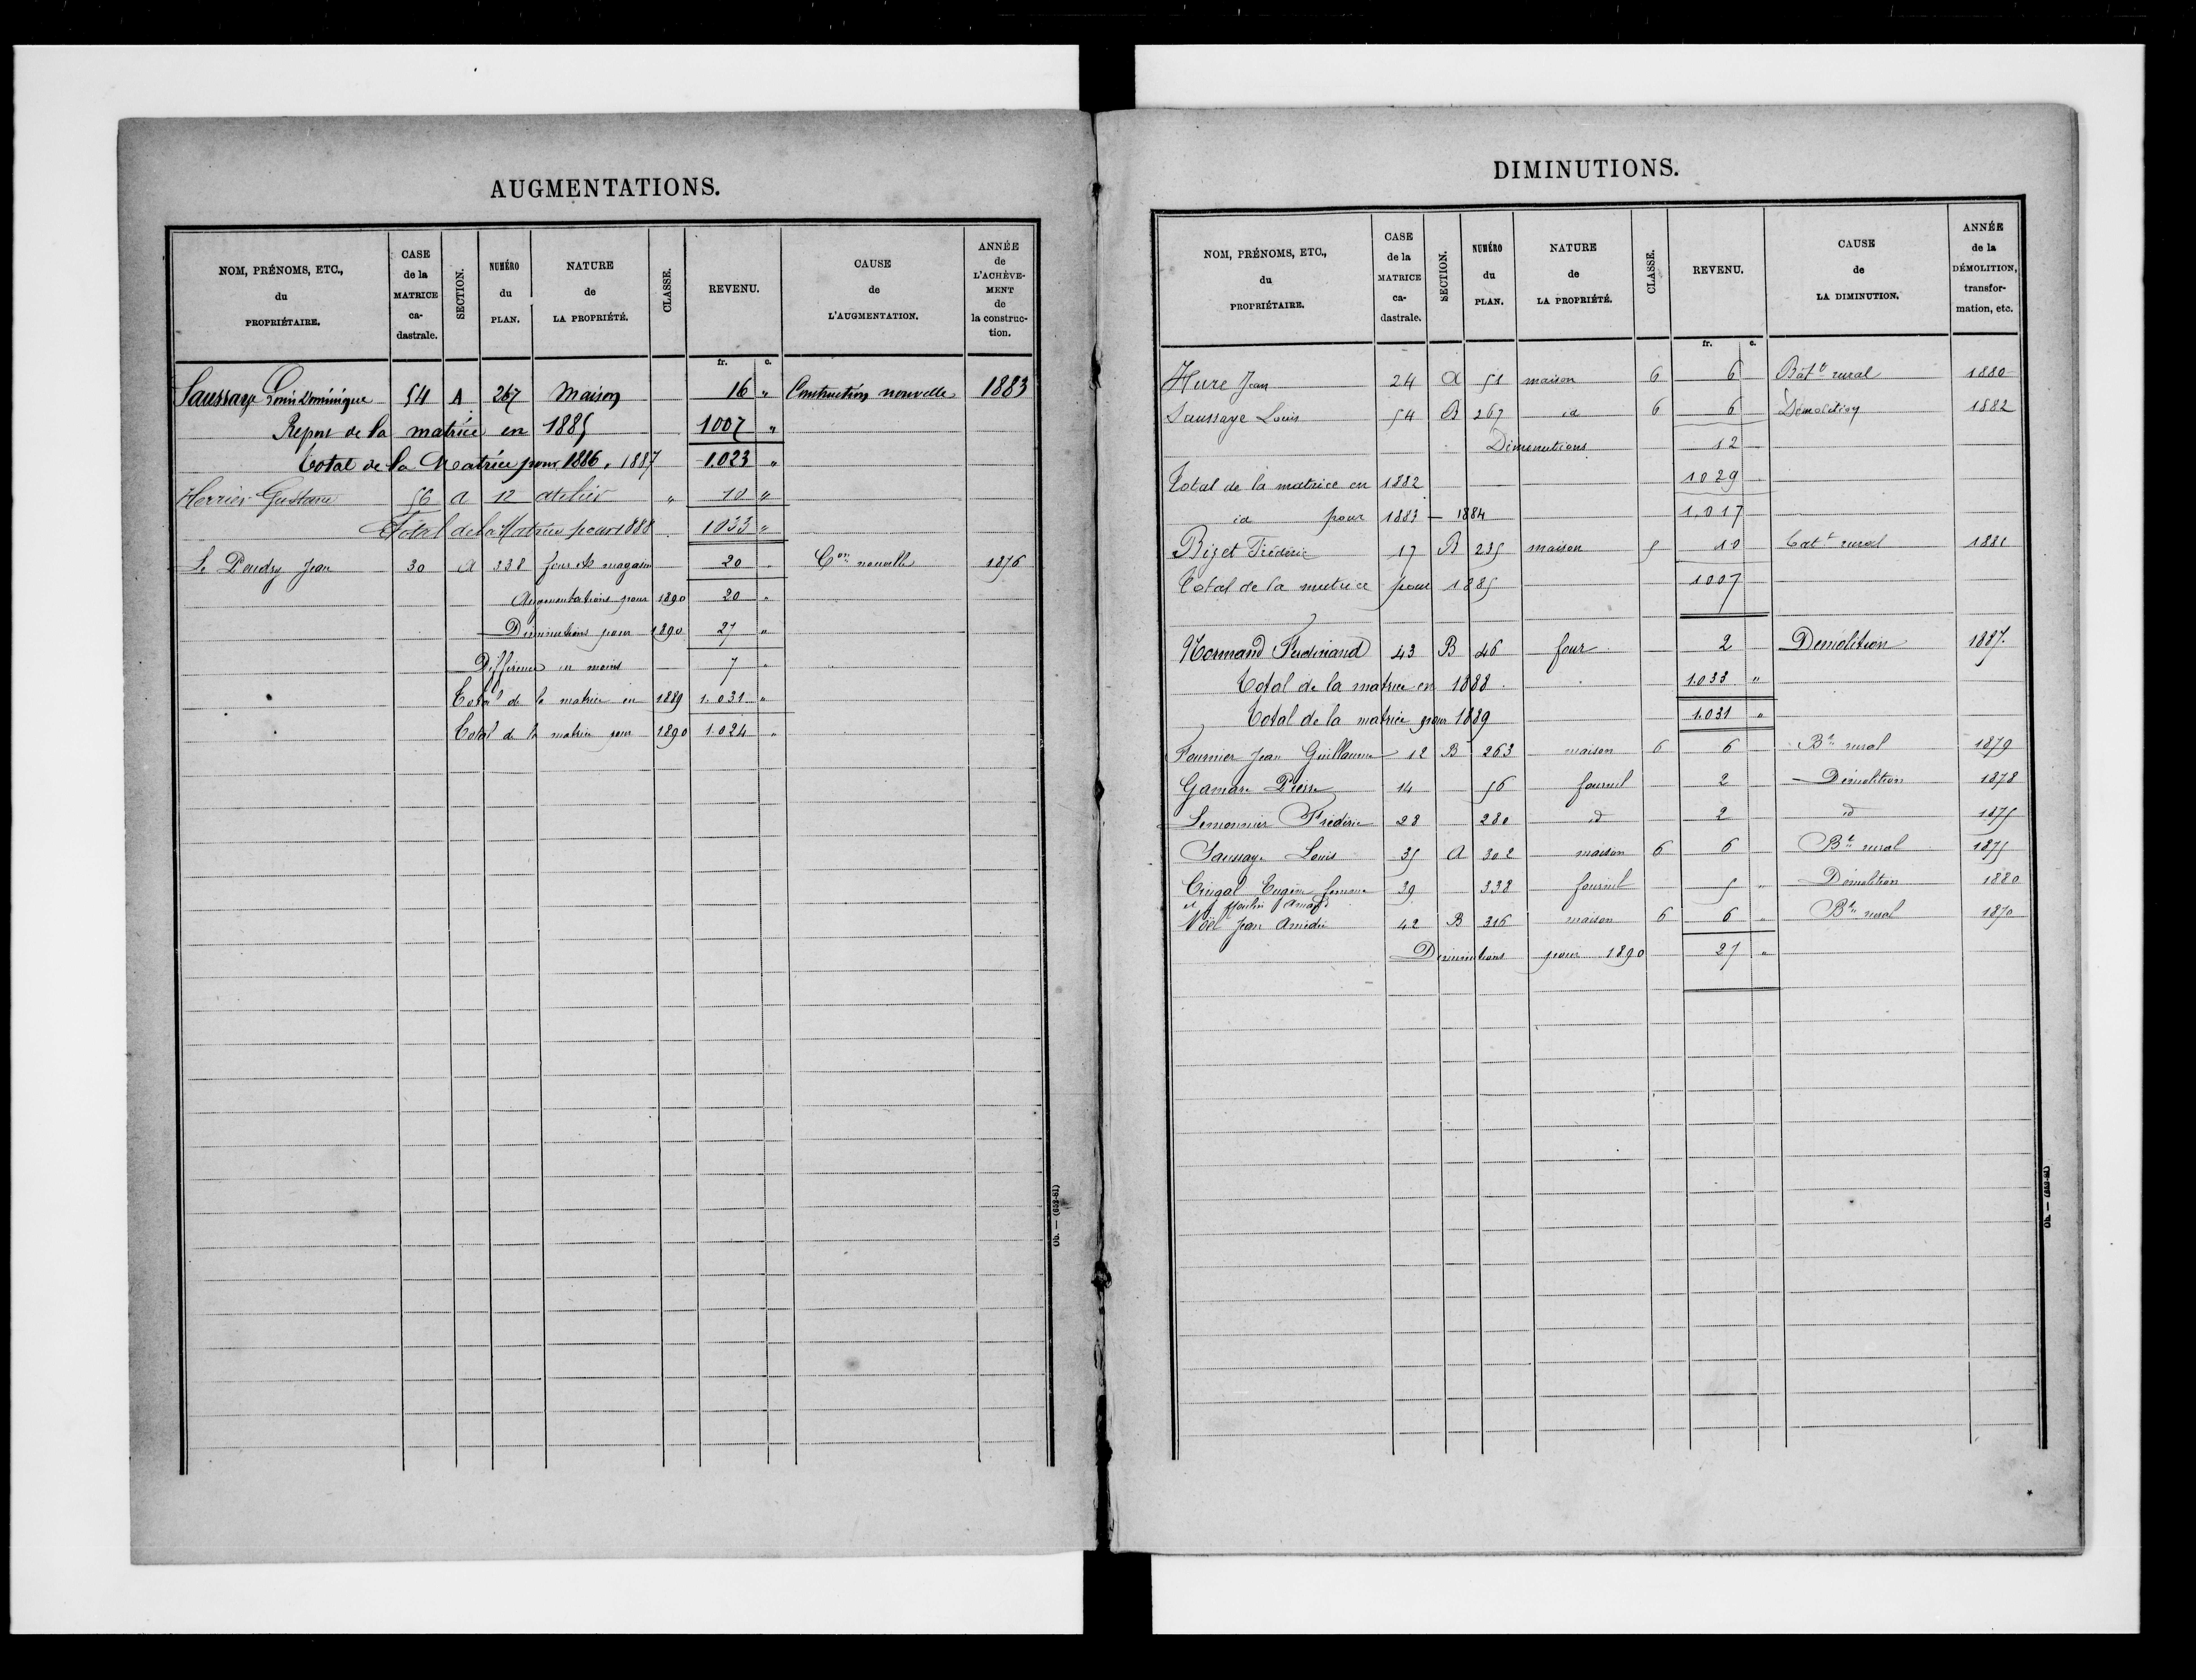 AUGMENTATIONS.
NOM, PRÉNOMS, ETC., du PROPRIÉTAIRE. | CASE de la MATRICE ca- dastrale. | SECTION. | NUMÉRO du PLAN. | NATURE de LA PROPRIÉTÉ. | CLASSE. | REVENU. | CAUSE de L'AUGMENTATION. | ANNÉE de L'ACHÈVE- MENT de la construc- tion.
fr. c.
Saussaye Louis Dominique 54 A 267 Maison 16 " Construction nouvelle 1883
Report de la matrice en 1885 1007 "
Total de la Matrice pour 1886. 1887 1.023 "
Herrier Gustave 56 A 12 atelier " 10 "
Total de la Matrice pour 1888 1033 "
Le Poudry Jean 30 A 338 four et magasin 20 " Con nouvelle 1876
Augmentations pour 1890 20 "
Diminutions pour 1890 27 "
Différence en moins 7 "
Total de la matrice en 1889 1.031 "
Total de la matrice pour 1890 1.024 "
Ob. — (652-81)
DIMINUTIONS.
NOM, PRÉNOMS, ETC., du PROPRIÉTAIRE. | CASE de la MATRICE ca- dastrale. | SECTION. | NUMÉRO du PLAN. | NATURE de LA PROPRIÉTÉ. | CLASSE. | REVENU. | CAUSE de LA DIMINUTION. | ANNÉE de la DÉMOLITION, transfor- mation, etc.
fr. c.
Hure Jean 24 A 51 maison 6 6 Bâtt rural 1880
Saussaye Louis 54 B 267 id 6 6 Démolition 1882
Diminutions 12
Total de la matrice en 1882 1029
id pour 1883 — 1884 1.017
Bizet Frédéric 17 B 235 maison 5 10 Batt rural 1881
Total de la matrice pour 1885 1007
Normand Ferdinand 43 B 46 four 2 Demolition 1887.
Total de la matrice en 1888. 1.033 "
Total de la matrice pour 1889 1.031 "
Fournier Jean Guillaume 12 B 263 maison 6 6 Bt rural 1879
Gamare Pierre 14 56 fournil 2 Démolition 1878
Lemonnier Frédéric 28 280 id 2 id 1875
Saussaye Louis 35 A 302 maison 6 6 Bt rural 1875
Cingal Eugène femme 39 338 fournil 5 " Démolition 1880
et
Noël Jean Amédée 42 B 316 maison 6 6 " Bt rural 1870
Diminutions pour 1890 27 "
Ob. — (652-81)